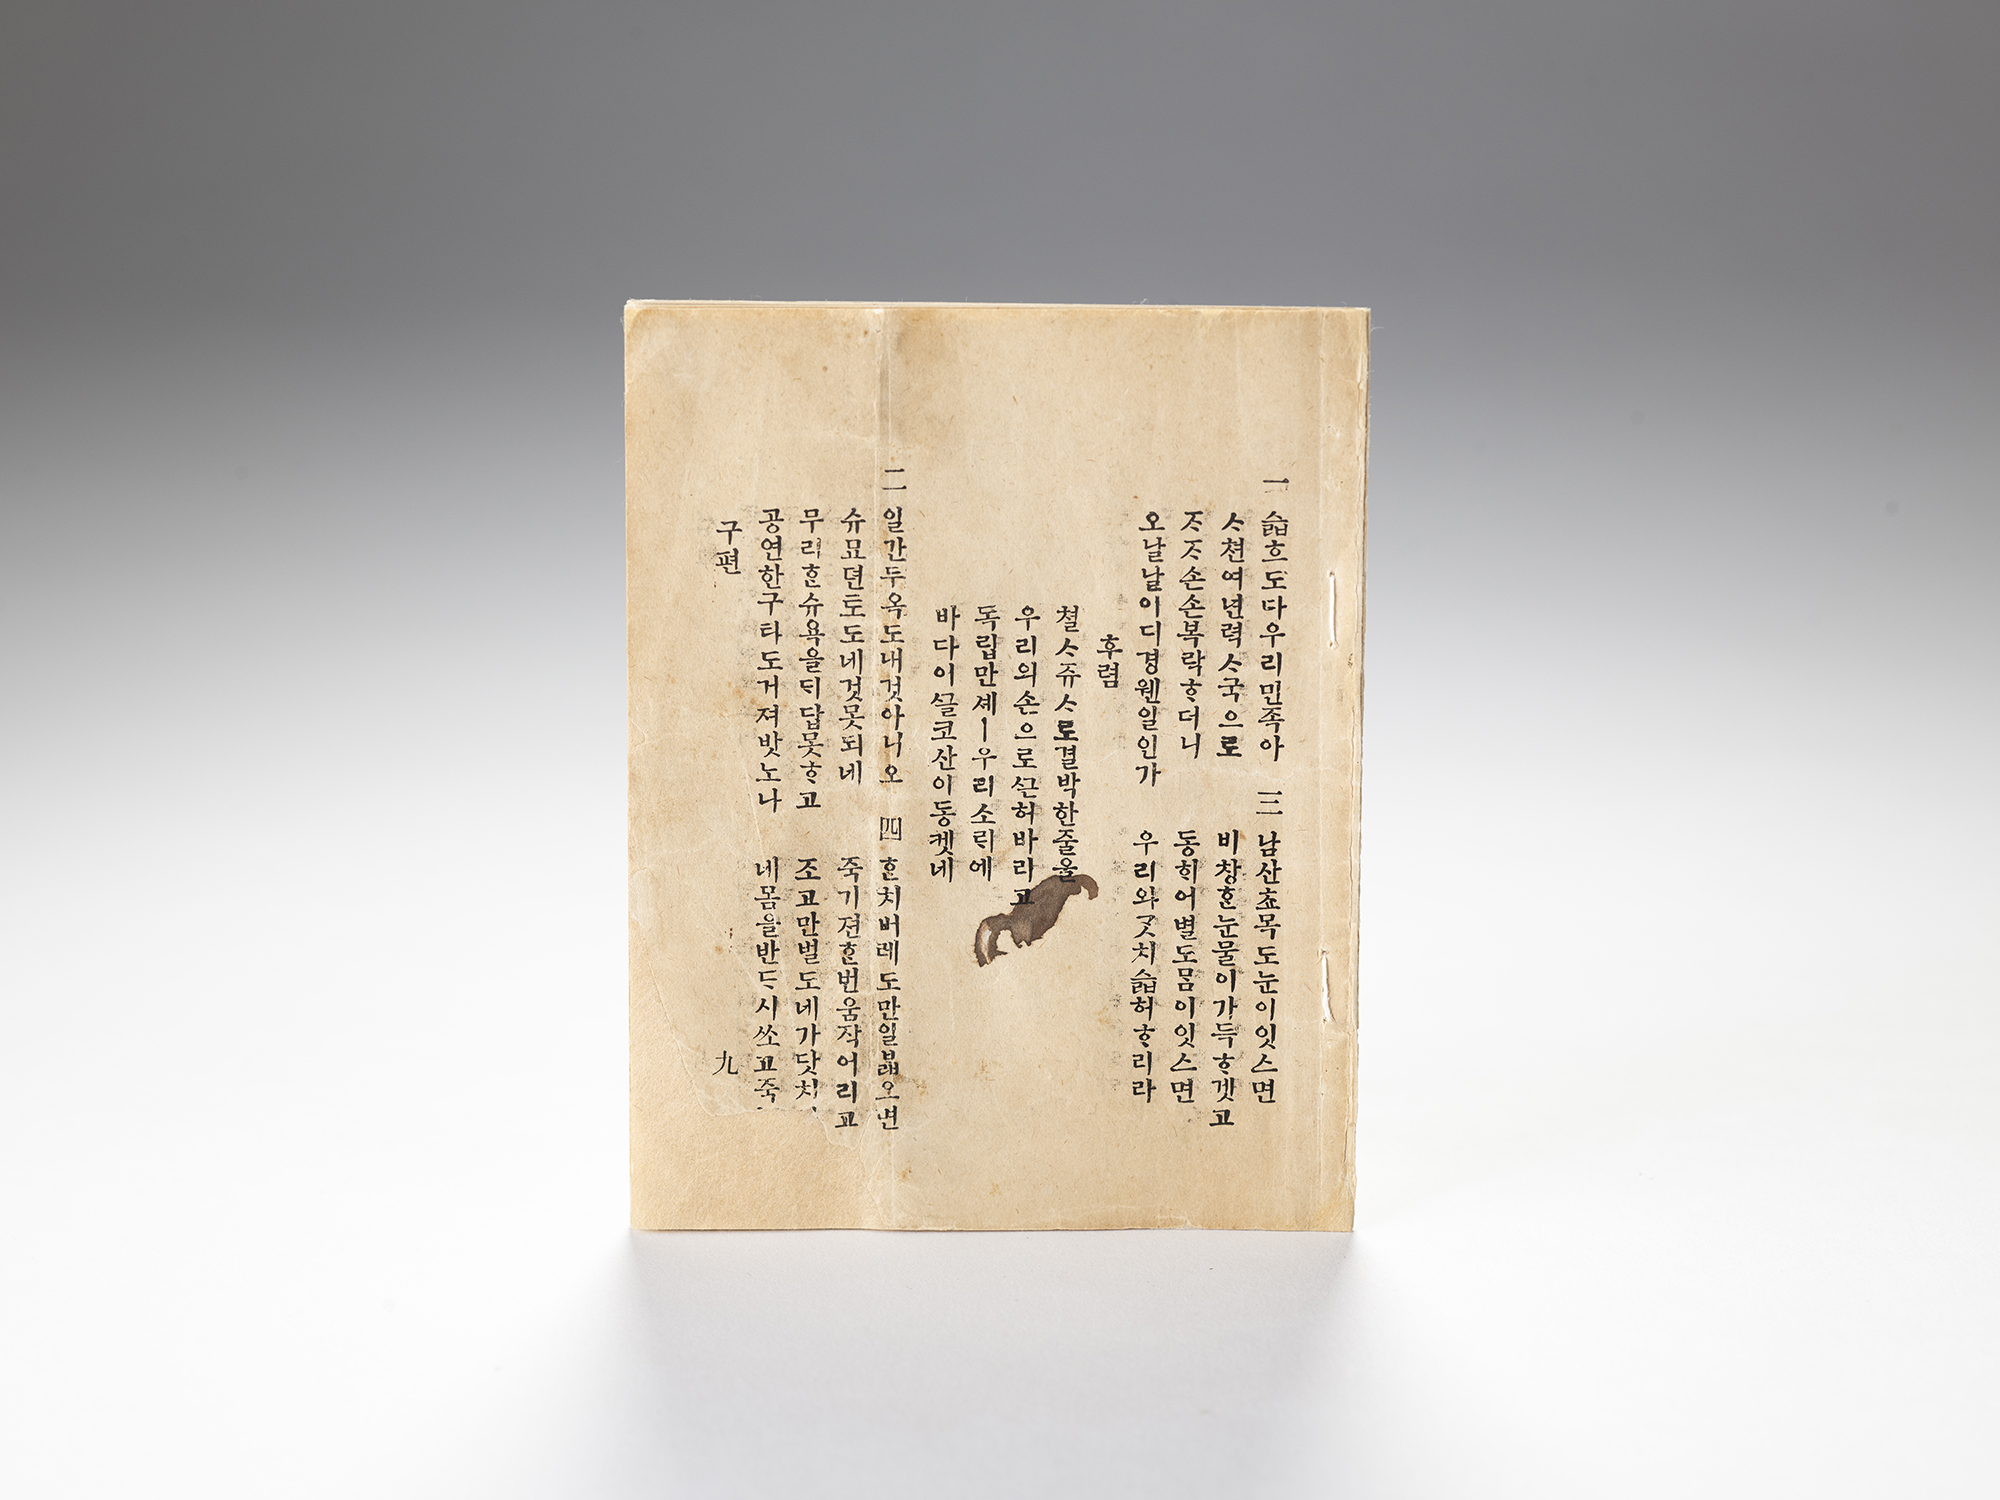 一 슯흐도다우리민족아
ᄉᆞ쳔여년력ᄉᆞ국으로
ᄌᆞᄌᆞ손손복락ᄒᆞ더니
오날날이디경웬일인가
후렴
쳘ᄉᆞ쥬ᄉᆞ로결박한줄을
우리의손으로ᄭᅳᆫ허바라고
독립만셰ㅣ우리소ᄅᆡ에
바다이ᄭᅳᆯ코산이동켓네
二 일간두옥도내것아니오
슈묘뎐토도네것못되네
무리ᄒᆞᆫ슈욕을ᄃᆡ답못ᄒᆞ고
공연한구타도거져밧노나
三 남산쵸목도눈이잇스면
비창ᄒᆞᆫ눈물이가득ᄒᆞ겟고
동ᄒᆡ어별도ᄆᆞᆷ이잇스면
우리와ᄀᆞᆺ치슯허ᄒᆞ리라
四 ᄒᆞᆫ치버레도만일ᄇᆞᆲ오면
죽기젼ᄒᆞᆫ번움작어리고
조고만벌도네가닷치
네몸을반ᄃᆞ시쏘고죽
구편
九